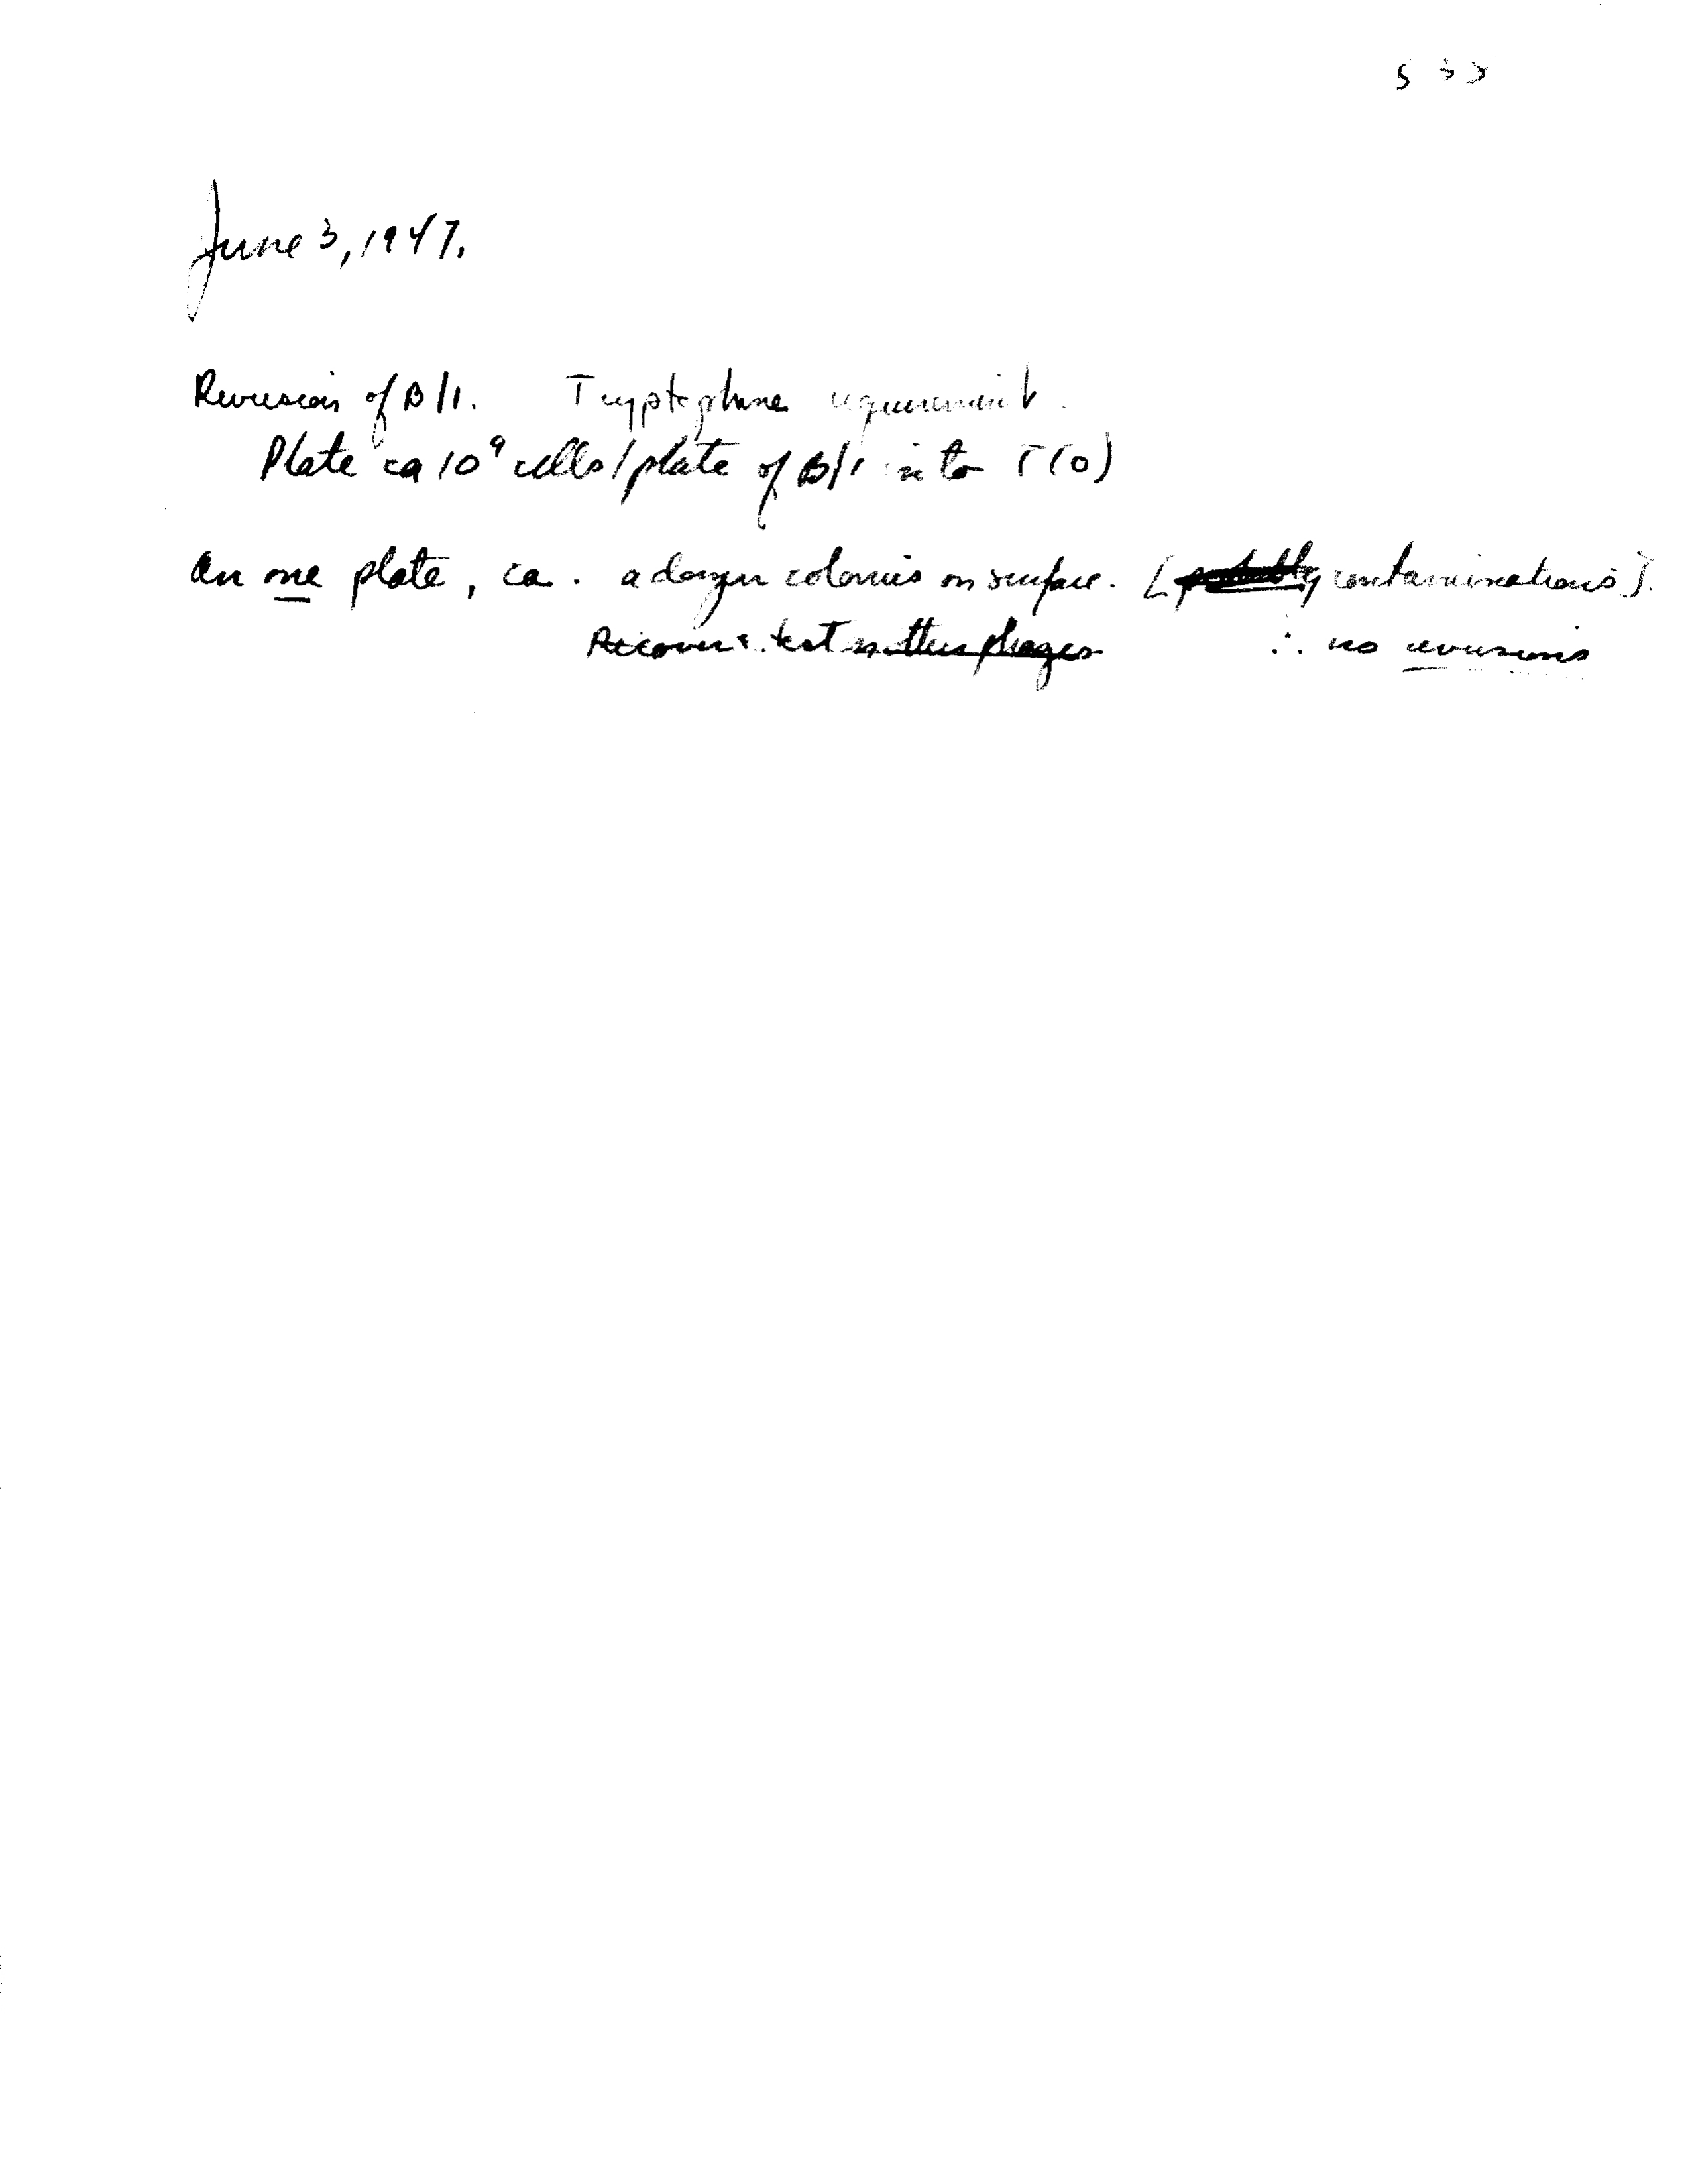 June 3, 1947.
Reversion of B/1. Tryptophane requirement.
Plate ca 10⁹ cells/plate of B/1 into T(0)
On one plate, ca. a dozen colonies on surface. [probably contaminations].
Recover & test with phages ∴ no reversions